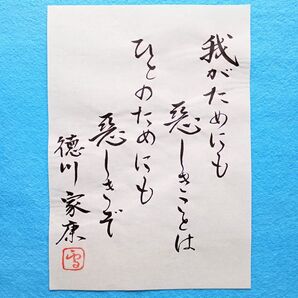 我がためにも
惡しきことは
ひとのためにも
惡しきぞ
徳川家康
雪